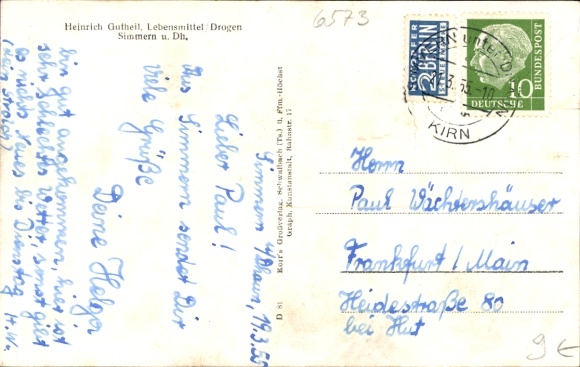 Heinrich Gutheil, Lebensmittel/Drogen
Simmern u. Dh.
6573
NOTOPFER
2 BERLIN
STEUERMARKE
DEUTSCHE
BUNDESPOST
10
KIRN
Simmern u/Dhaun, 19.3.55
Lieber Paul!
Aus Simmern sendet Dir
Viele Grüße
Deine Helga
bin gut angekommen, hier ist
sehr schlechtes Wetter, sonst gibt
es nichts Neues bis Dienstag H. W.
D 81 Korr's Großverlag, Schwalbach (Ts.) u. Ffm.-Höchst
Graph. Kunstanstalt, Bahnstr. 17
Herrn
Paul Wächtershäuser
Frankfurt / Main
Heidestraße 80
bei Hut
9 €